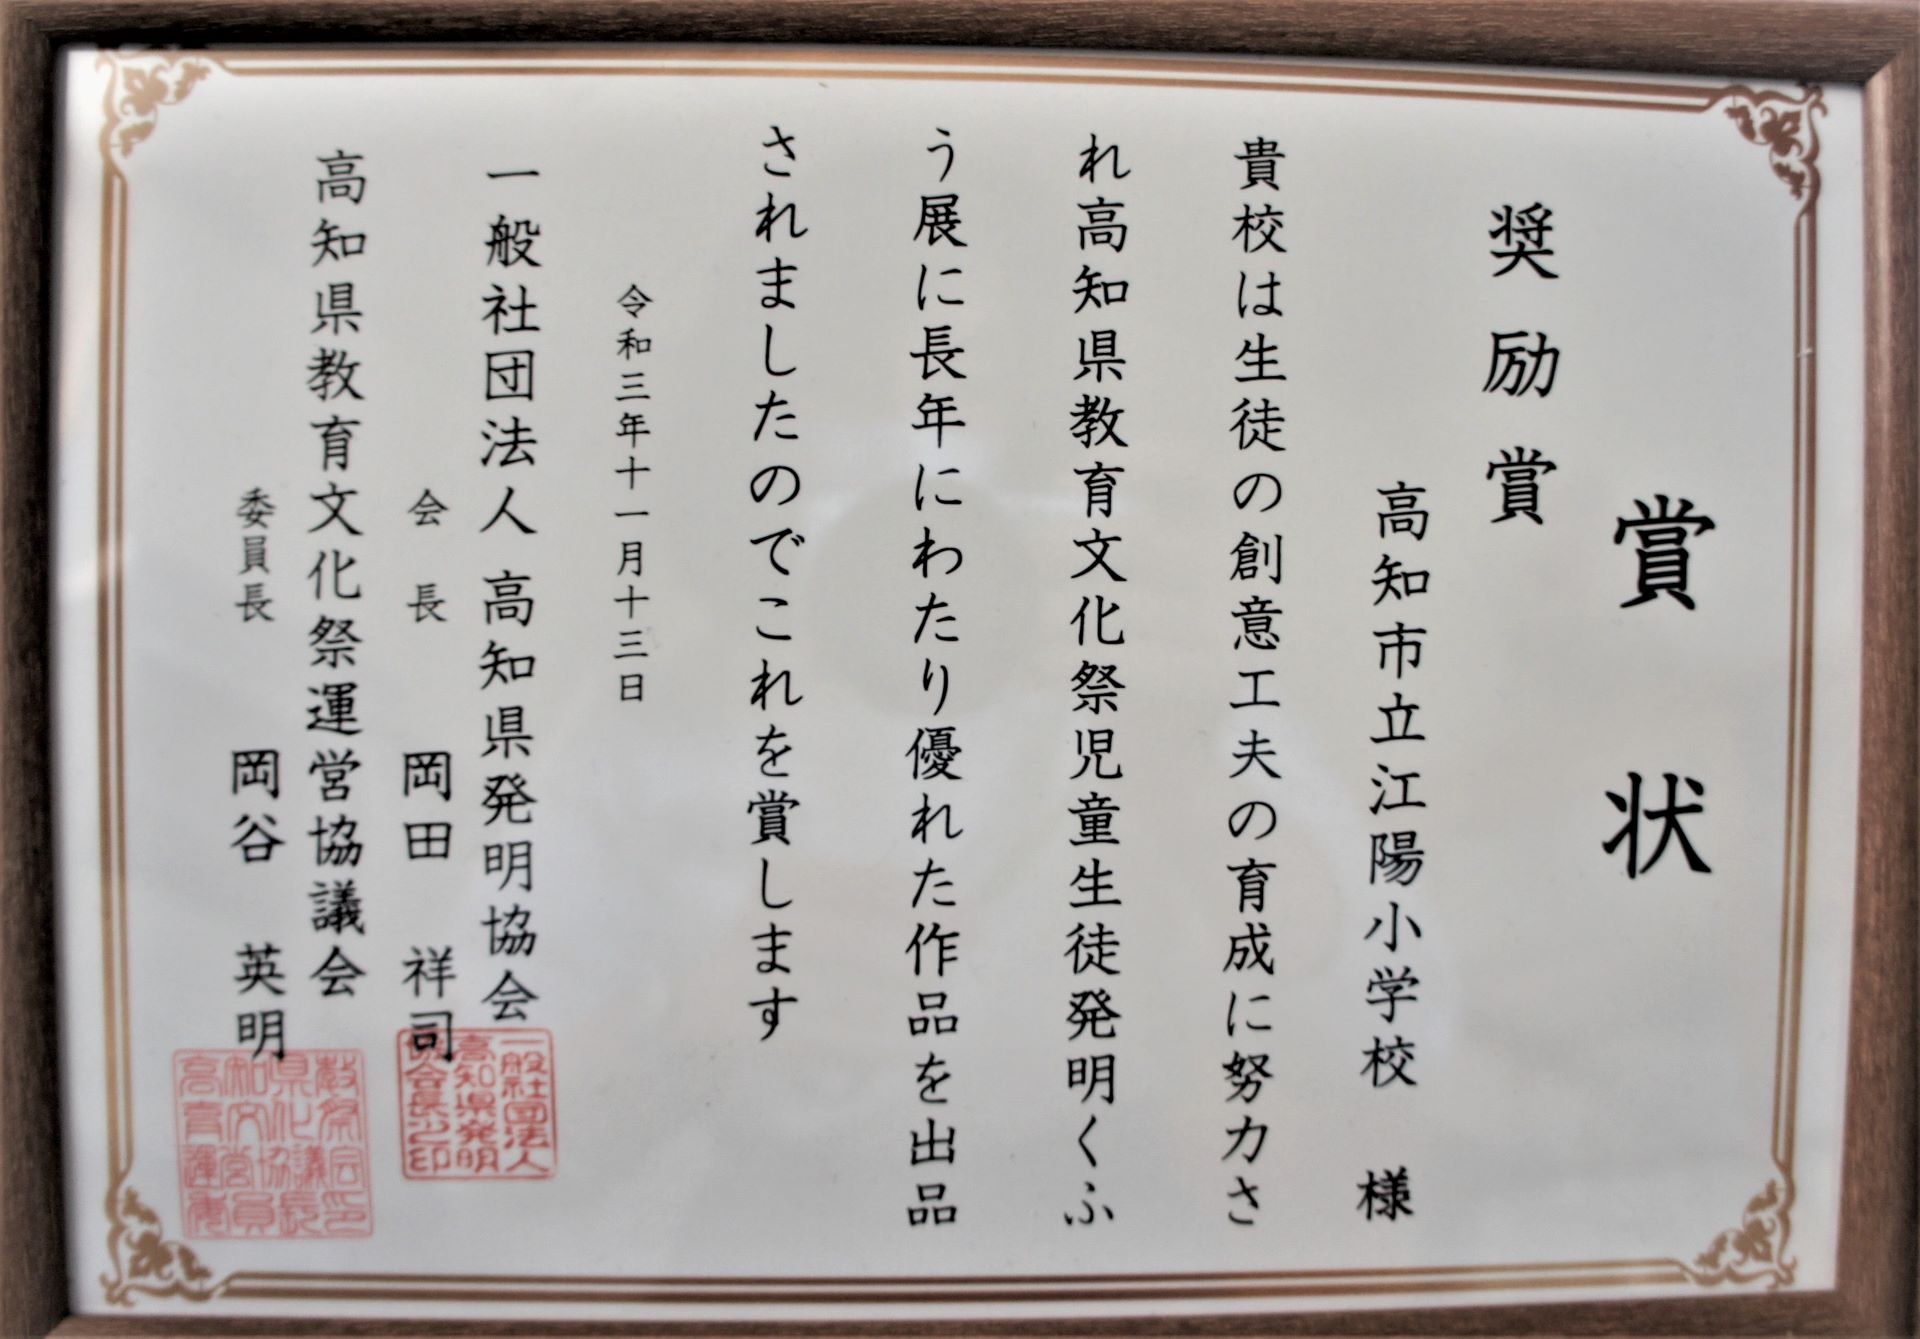 賞状
奨励賞
高知市立江陽小学校 様
貴校は生徒の創意工夫の育成に努力さ
れ高知県教育文化祭児童生徒発明くふ
う展に長年にわたり優れた作品を出品
されましたのでこれを賞します
令和三年十一月十三日
一般社団法人 高知県発明協会
会長 岡田 祥司
高知県教育文化祭運営協議会
委員長 岡谷 英明
一般社団法人
高知県発明
協会長之印